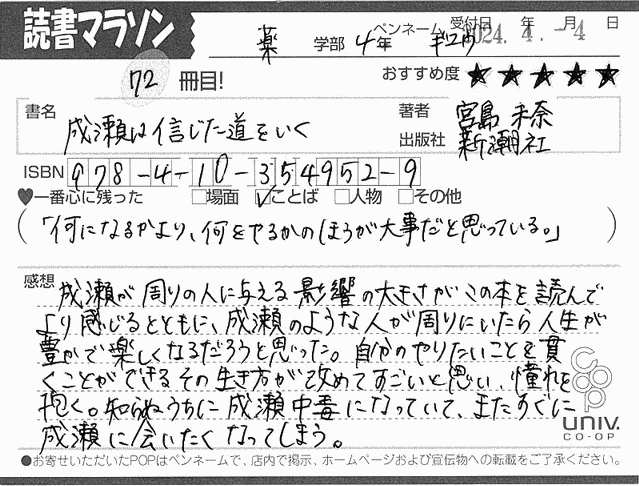 読書マラソン
薬 学部 4年 ペンネーム ギユウ 受付日 年 月 日
2024. 4. -4
72 冊目! おすすめ度 ★★★★★
書名 成瀬は信じた道をいく 著者 宮島 未奈
出版社 新潮社
ISBN 978-4-10-354952-9
♥一番心に残った □場面 ☑ことば □人物 □その他
(「何になるかより、何をやるかのほうが大事だと思っている。」)
感想
成瀬が周りの人に与える影響の大きさがこの本を読んで
より感じるとともに、成瀬のような人が周りにいたら人生が
豊かで楽しくなるだろうと思った。自分のやりたいことを貫
くことができるその生き方が改めてすごいと思い、憧れを
抱く。知らぬうちに成瀬中毒になっていて、またすぐに
成瀬に会いたくなってしまう。
coop
UNIV.
CO-OP
●お寄せいただいたPOPはペンネームで、店内で掲示、ホームページおよび宣伝物への転載をご了承ください。